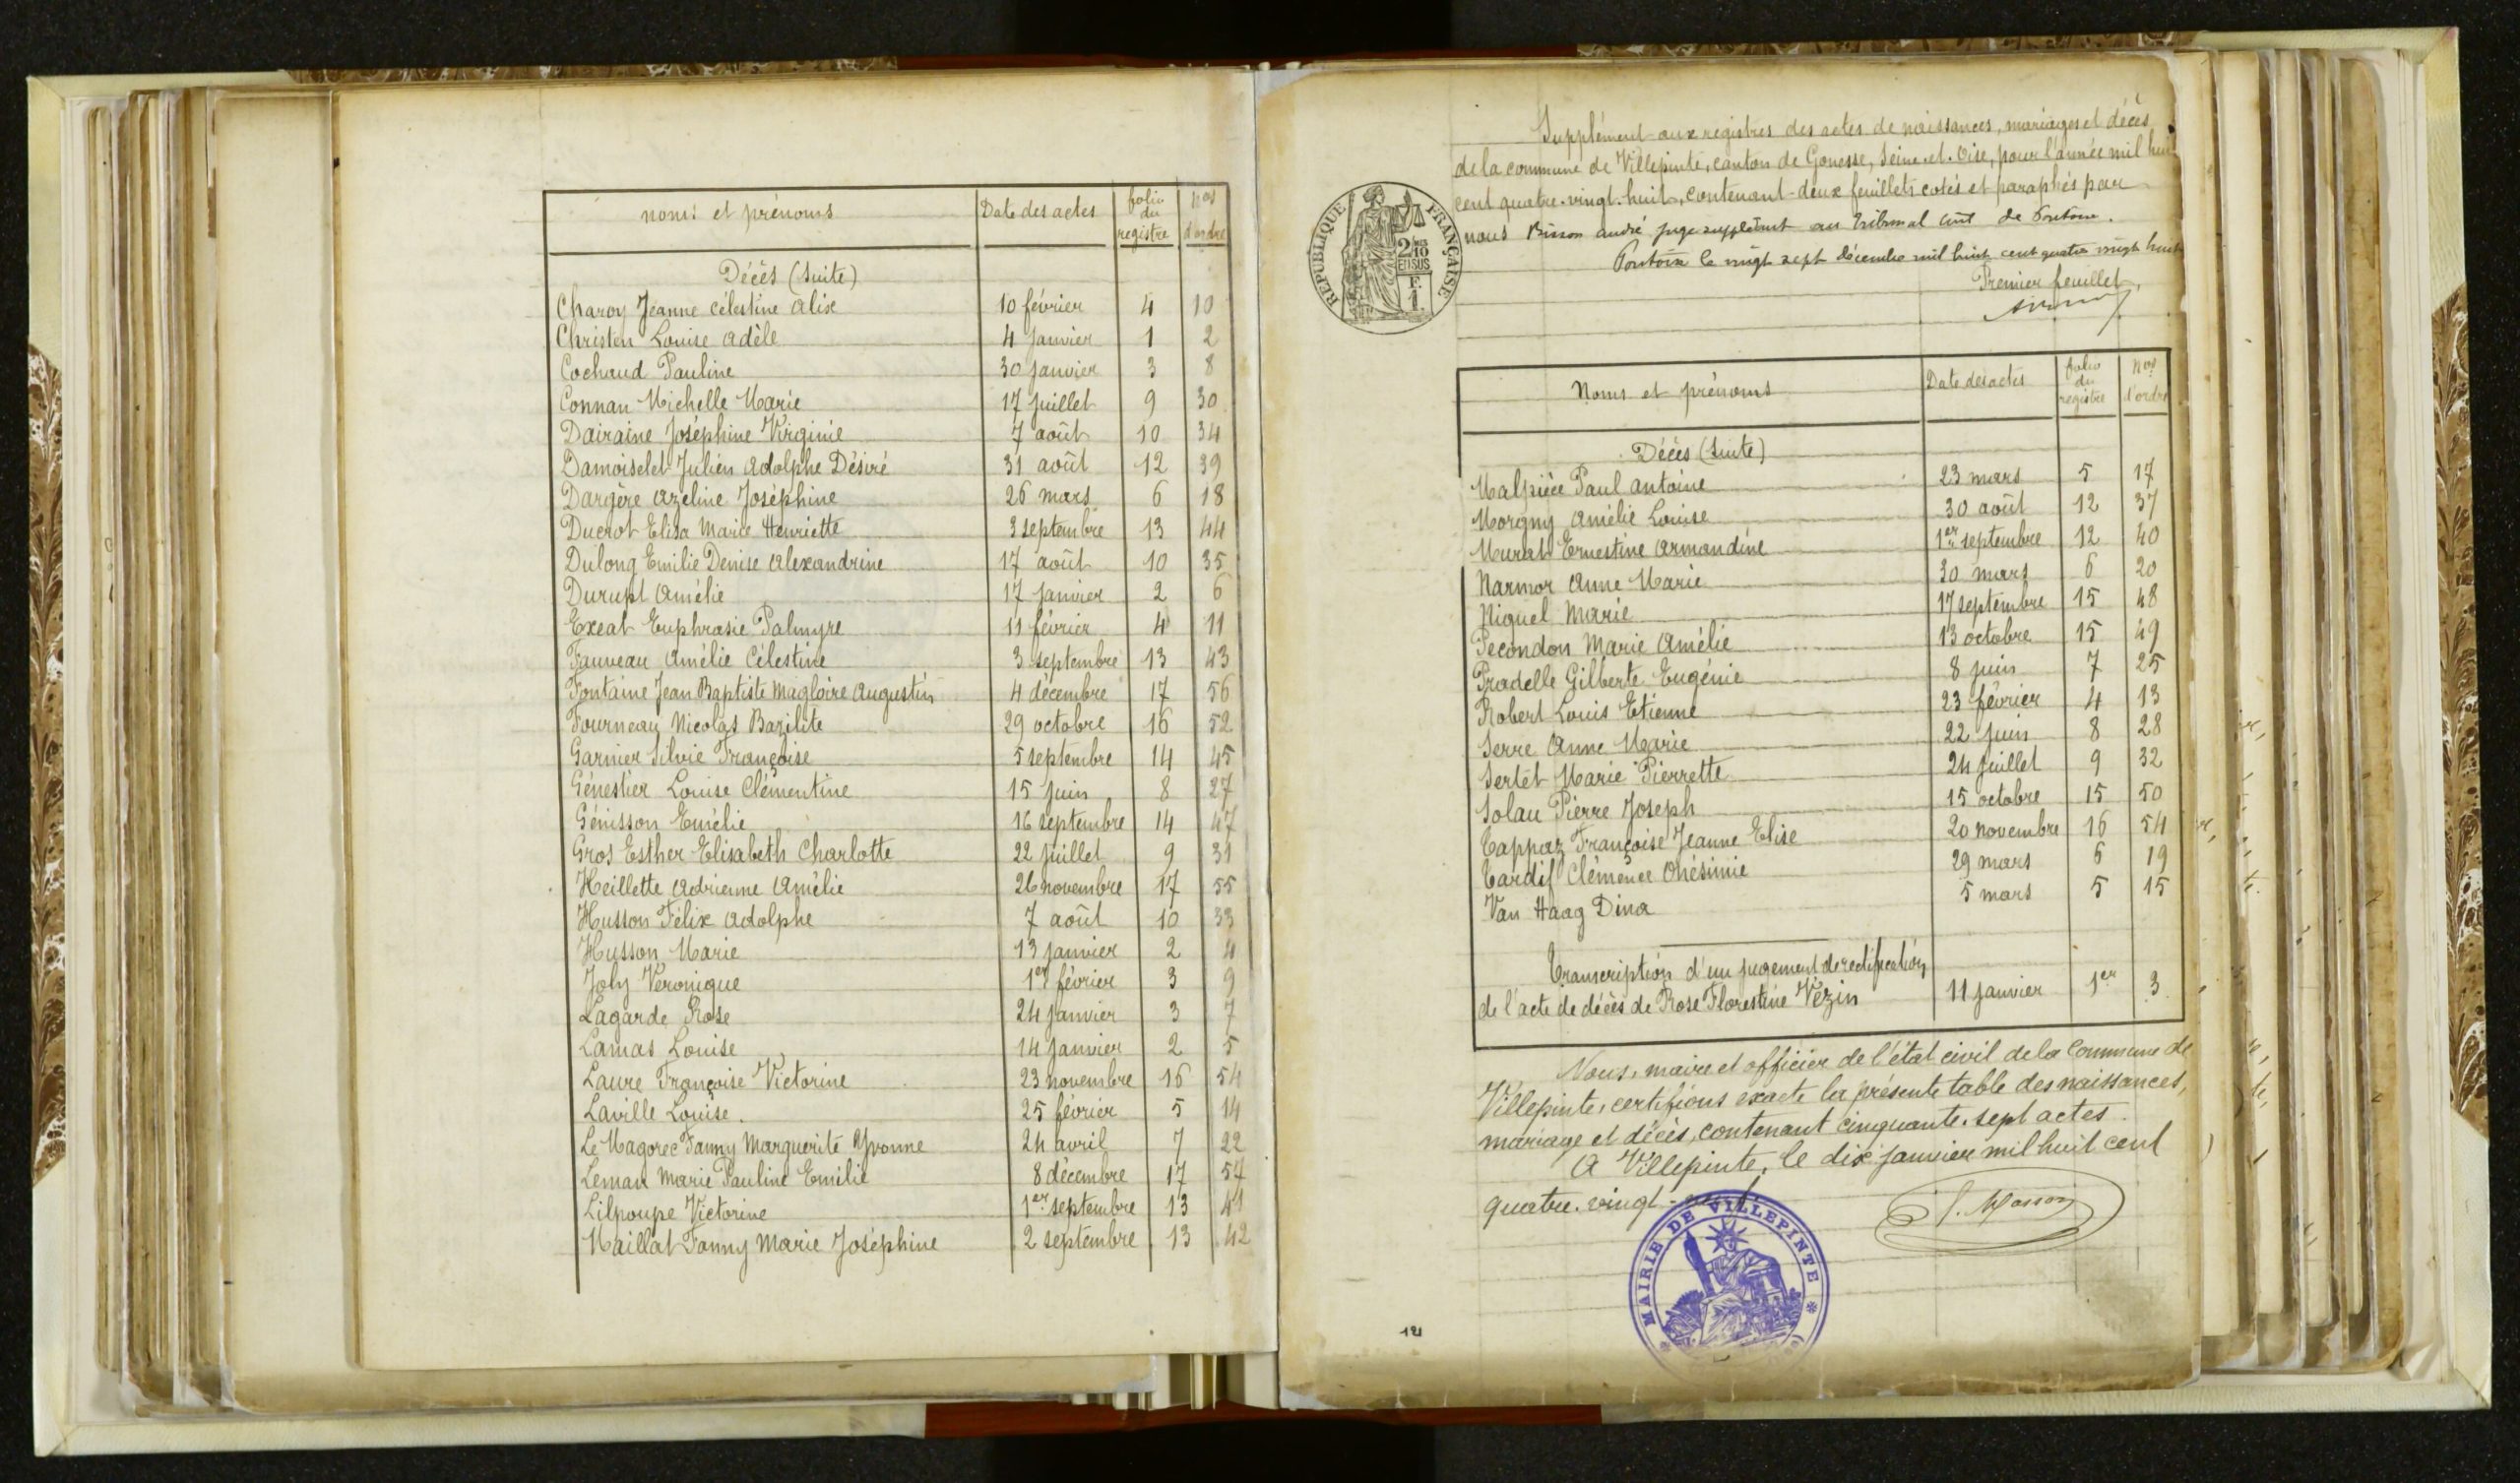 noms et prénoms Date des actes folio du registre nos d'ordre
Décès (suite)
Charoy Jeanne Célestine Alix 10 février 4 10
Christen Louise Adèle 4 janvier 1 2
Cochaud Pauline 30 janvier 3 8
Connan Michelle Marie 17 juillet 9 30
Dairaine Joséphine Virginie 7 août 10 34
Damoiselet Julien Adolphe Désiré 31 août 12 39
Dargère Azeline Joséphine 26 mars 6 18
Ducrot Elisa Marie Henriette 3 septembre 13 44
Dulong Emilie Denise Alexandrine 17 août 10 35
Durupt Amélie 17 janvier 2 6
Exeat Euphrasie Palmyre 11 février 4 11
Fauveau Amélie Célestine 3 septembre 13 43
Fontaine Jean Baptiste Magloire Augustin 4 décembre 17 56
Fourneau Nicolas Bazilite 29 octobre 16 52
Garnier Silvie Françoise 5 septembre 14 45
Génestier Louise Clémentine 15 juin 8 27
Génisson Emélie 16 septembre 14 47
Gros Esther Elisabeth Charlotte 22 juillet 9 31
Heillette Adrienne Amélie 26 novembre 17 55
Husson Félix Adolphe 7 août 10 33
Husson Marie 13 janvier 2 4
Joly Véronique 1er février 3 9
Lagarde Rose 24 janvier 3 7
Lamas Louise 14 janvier 2 5
Laure Françoise Victorine 23 novembre 16 54
Laville Louise. 25 février 5 14
Le Magorec Fanny Marguerite Yvonne 24 avril 7 22
Leman Marie Pauline Emilie 8 décembre 17 57
Lilpoupe Victorine 1er septembre 13 41
Maillat Fanny Marie Joséphine 2 septembre 13 42
Supplément aux registres des actes de naissances, mariages et décès
de la commune de Villepinte, canton de Gonesse, Seine-et-Oise, pour l'année mil huit
cent quatre-vingt-huit, contenant deux feuillets cotés et paraphés par
nous Bisson André juge suppléant au tribunal civil de Pontoise.
Pontoise le vingt sept décembre mil huit cent quatre vingt huit
Premier feuillet,
RÉPUBLIQUE FRANÇAISE
2/10 EN SUS
F. 1.
Noms et prénoms Date des actes folio du registre Nos d'ordre
Décès (suite)
Malpièce Paul Antoine 23 mars 5 17
Morgny Amélie Louise 30 août 12 37
Murat Ernestine Armandine 1er septembre 12 40
Narmor Anne Marie 30 mars 6 20
Niquel Marie 17 septembre 15 48
Pecondon Marie Amélie 13 octobre 15 49
Pradelle Gilberte Eugénie 8 juin 7 25
Robert Louis Etienne 23 février 4 13
Serre Anne Marie 22 juin 8 28
Sertét Marie Pierrette 24 juillet 9 32
Solau Pierre Joseph 15 octobre 15 50
Tappaz Françoise Jeanne Elise 20 novembre 16 54
Tardif Clémence Onésimie 29 mars 6 19
Van Haag Dina 5 mars 5 15
Transcription d'un jugement de rectification
de l'acte de décès de Rose Florestine Vézin 11 janvier 1er 3
Nous, maire et officier de l'état civil de la Commune de
Villepinte, certifions exacte la présente table des naissances,
mariage et décès, contenant cinquante-sept actes.
A Villepinte, le dix janvier mil huit cent
quatre-vingt-
MAIRIE DE VILLEPINTE